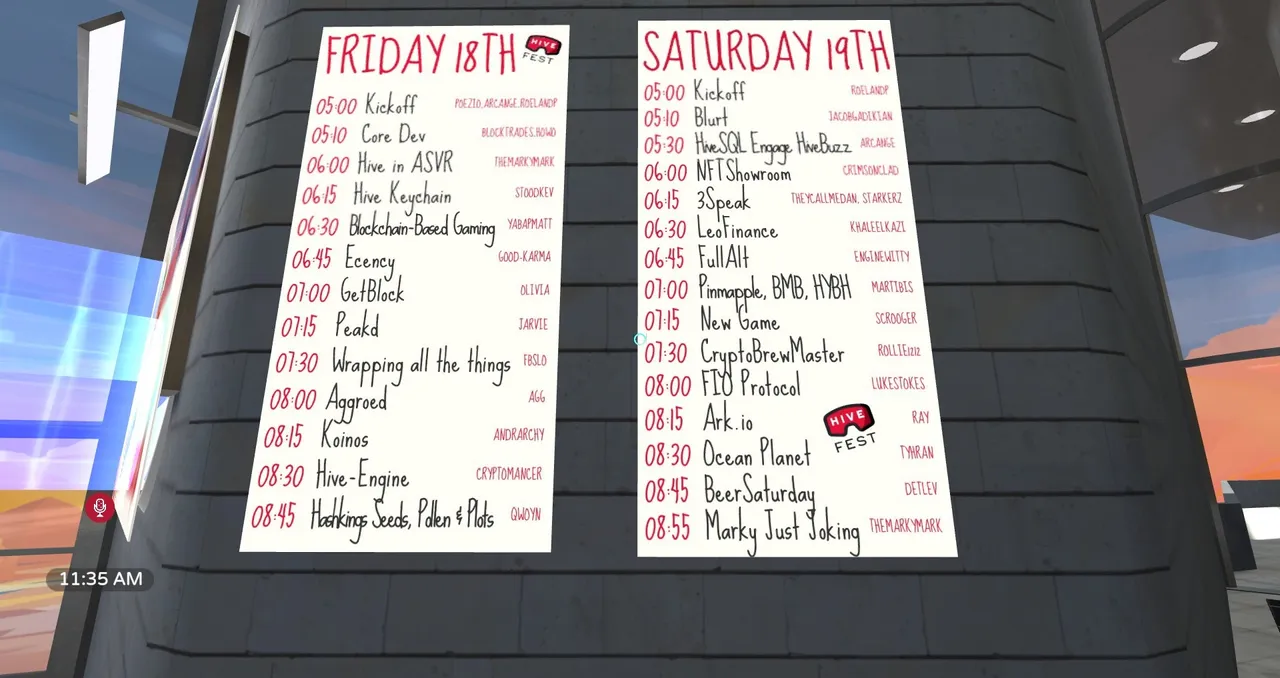 FRIDAY 18TH
HIVE
FEST
05:00 Kickoff POEZIO, ARCANGE, ROELANDP
05:10 Core Dev BLOCKTRADES, HOWO
06:00 Hive in ASVR THEMARKYMARK
06:15 Hive Keychain STOODKEV
06:30 Blockchain-Based Gaming YABAPMATT
06:45 Ecency GOOD-KARMA
07:00 GetBlock OLIVIA
07:15 Peakd JARVIE
07:30 Wrapping all the things FBSLO
08:00 Aggroed AGG
08:15 Koinos ANDRARCHY
08:30 Hive-Engine CRYPTOMANCER
08:45 Hashkings Seeds, Pollen & Plots QWOYN
SATURDAY 19TH
05:00 Kickoff ROELANDP
05:10 Blurt JACOBGADIKIAN
05:30 HiveSQL Engage HiveBuzz ARCANGE
06:00 NFTShowroom CRIMSONCLAD
06:15 3Speak THEYCALLMEDAN, STARKERZ
06:30 LeoFinance KHALEELKAZI
06:45 FullAlt ENGINEWITTY
07:00 Pinmapple, BMB, HYBH MARTIBIS
07:15 New Game SCROOGER
07:30 CryptoBrewMaster ROLLIE1212
08:00 FIO Protocol LUKESTOKES
08:15 Ark.io RAY
HIVE
FEST
08:30 Ocean Planet TYHRAN
08:45 BeerSaturday DETLEV
08:55 Marky Just Joking THEMARKYMARK
11:35 AM